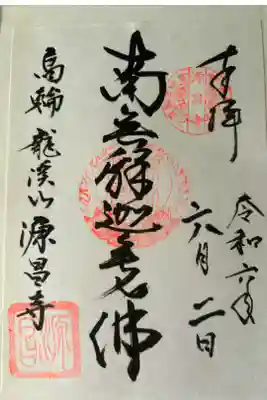 奉拝
令和六年
六月二日
南無釋迦牟尼佛
高輪 龍溪山 源昌寺